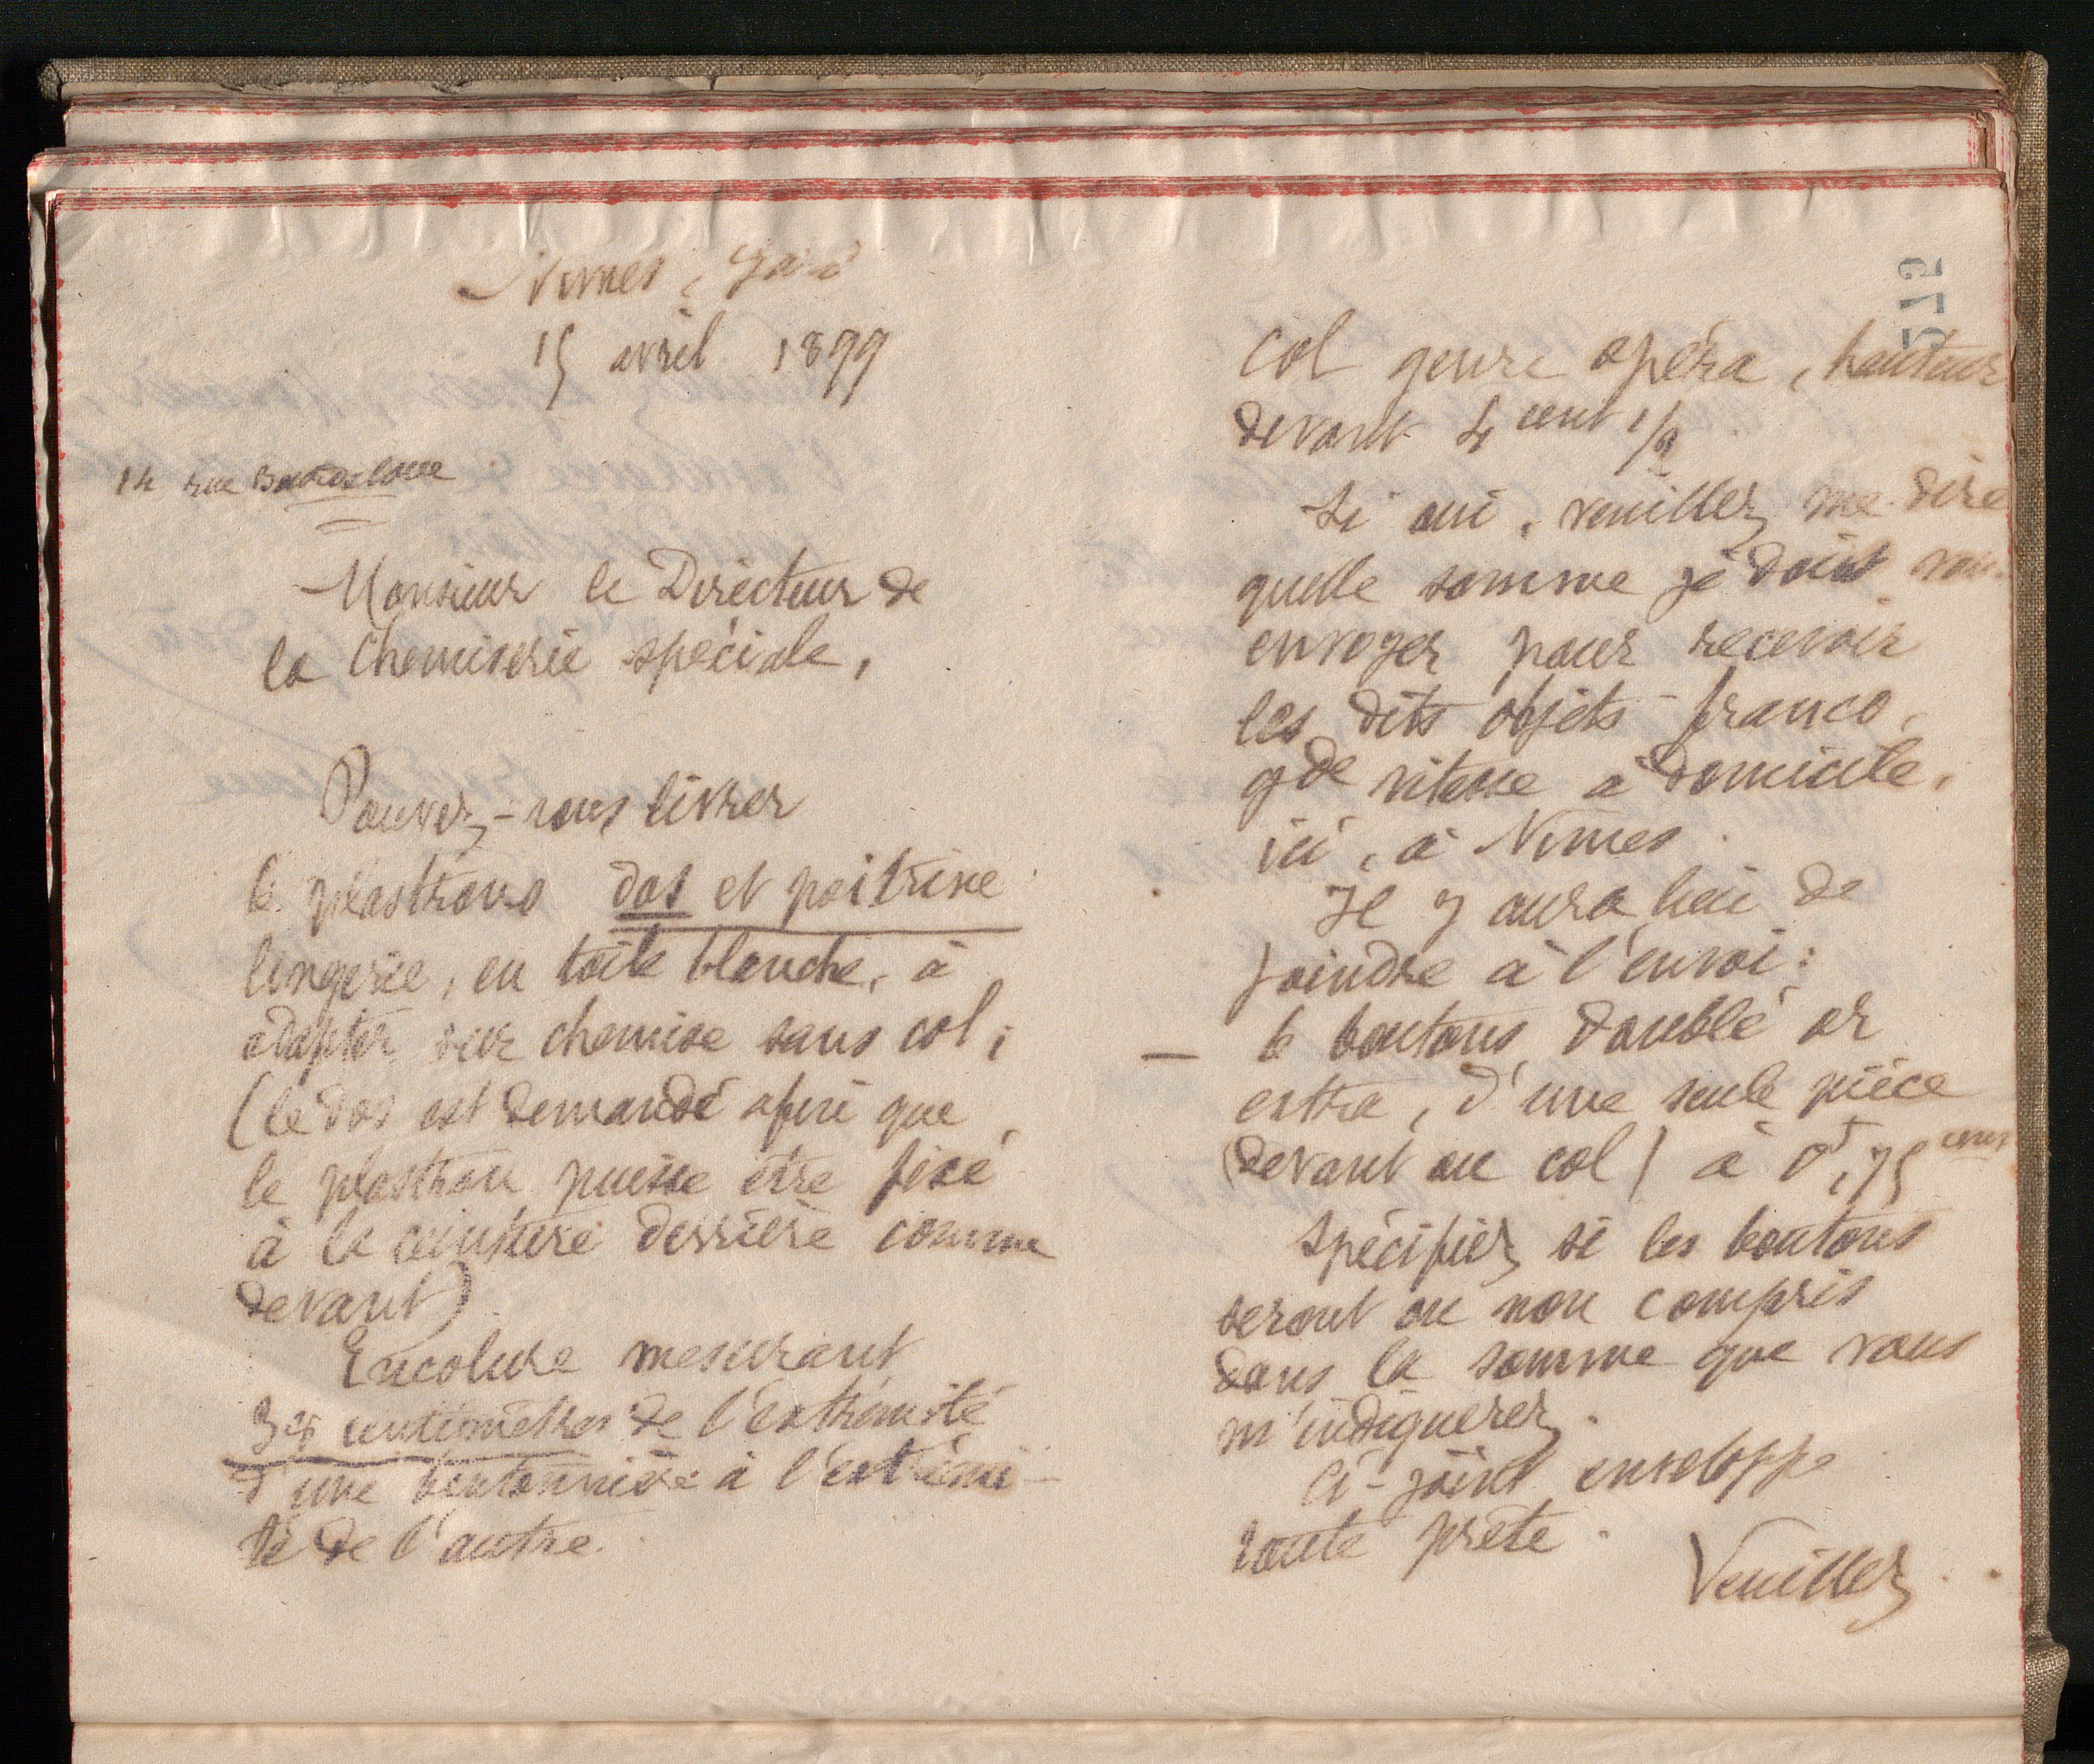 Nimes, Gard
15 avril 1899
14 rue Bourdaloue
Monsieur le Directeur de
la Chemiserie spéciale,
Pouvez-vous livrer
6 plastrons dos et poitrine
lingerie, en toile blanche, à
adapter sur chemise sans col ;
(le dos est demandé afin que
le plastron puisse être fixé
à la ceinture derrière comme
devant)
Encolure mesurant
centimètres de l'extrémité
d'une boutonnière à l'extrémi-
té de l'autre.
512
Col genre opéra, hauteur
devant 4 cent 1/2
Si oui, veuillez me dire
quelle somme je dois vous
envoyer pour recevoir
les dits objets franco,
gde vitesse à domicile,
ici, à Nimes.
Il y aura lieu de
joindre à l'envoi :
— 6 boutons doublé or
extra, d'une seule pièce
(devant au col) à 0f,75 cmes
Spécifiez si les boutons
seront ou non compris
dans la somme que vous
m'indiquerez.
Ci-joint enveloppe
toute prête.
Veuillez